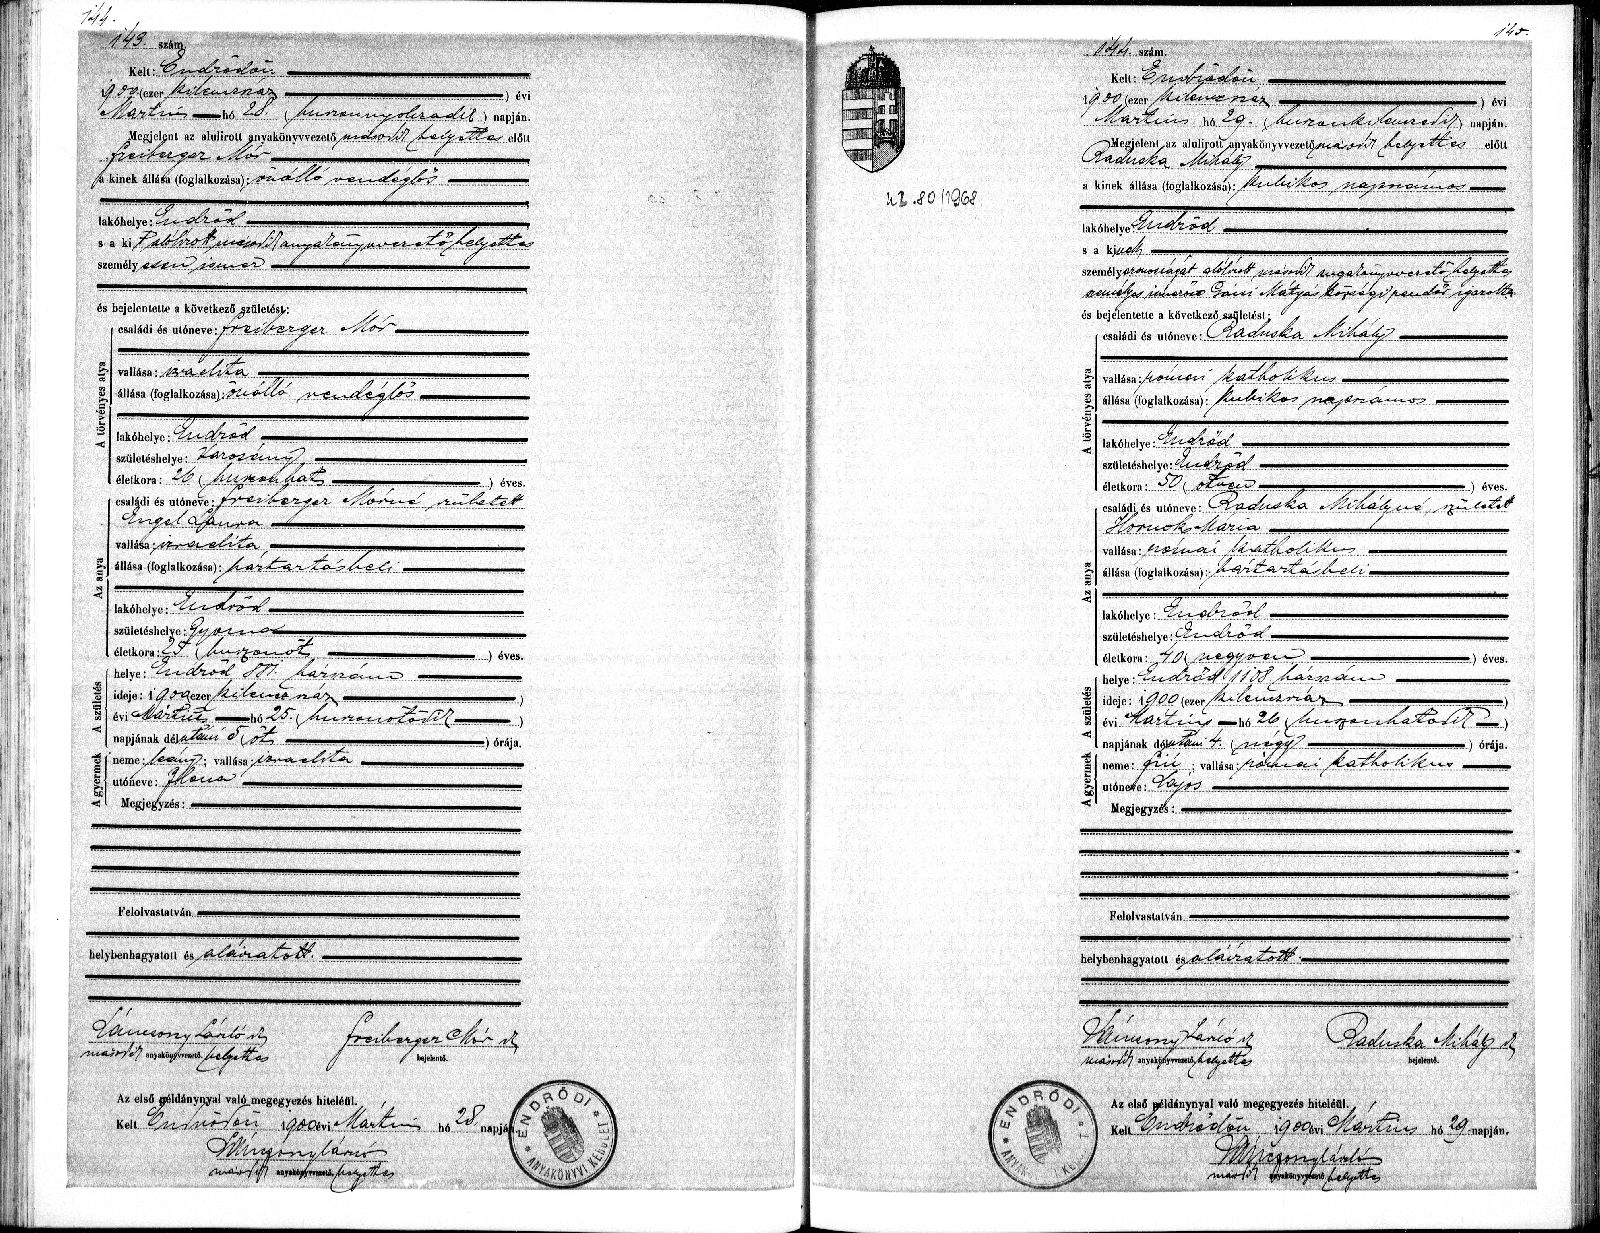 144.
143. szám.
Kelt: Endrődön.
1900 (ezer kilenczszáz ) évi
Martius hó 28. (huszonnyolczadik) napján.
Megjelent az alulirott anyakönyvvezető második helyettes előtt
Freiberger Mór
a kinek állása (foglalkozása): önálló vendéglős
lakóhelye: Endrőd
s a ki alólirott második anyakönyvvezető helyettes
személyesen ismer
és bejelentette a következő születést:
A törvényes atya
családi és utóneve: Freiberger Mór
vallása: izraelita
állása (foglalkozása): önálló vendéglős
lakóhelye: Endrőd
születéshelye:
életkora: 26 (huszonhat ) éves.
Az anya
családi és utóneve: Freiberger Mórné született
Engel Laura
vallása: izraelita
állása (foglalkozása): háztartásbeli
lakóhelye: Endrőd
születéshelye: Gyoma
életkora: 25 (huszonöt ) éves.
A születés
helye: Endrőd 887. házszám
ideje: 1900 (ezer kilenczszáz )
évi Mártius hó 25. (huszonötödik )
napjának délutáni 5 (öt ) órája.
A gyermek
neme: leány; vallása: izraelita
utóneve: Ilona
Megjegyzés:
Felolvastatván
helybenhagyatott és aláiratott.
Lánczony László sk Freiberger Mór sk
második anyakönyvvezető. helyettes bejelentő.
Az első példánynyal való megegyezés hiteléül.
Kelt Endrődön 1900 évi Mártius hó 28. napján.
Lánczony László
második anyakönyvvezető. helyettes
ENDRŐDI ANYAKÖNYVI KERÜLET
145.
144. szám.
UI.80/1968
Kelt: Endrődön
1900 (ezer kilenczszáz ) évi
Martius hó 29. (huszonkilenczedik) napján.
Megjelent az alulirott anyakönyvvezető második helyettes előtt
Raduska Mihály
a kinek állása (foglalkozása): kubikos napszámos
lakóhelye: Endrőd
s a kinek
személyazonosságát alólirott második anyakönyvvezető helyettes
személyes ismerőse Mátyás községi rendőr igazolta
és bejelentette a következő születést:
A törvényes atya
családi és utóneve: Raduska Mihály
vallása: római katholikus
állása (foglalkozása): kubikos napszámos
lakóhelye: Endrőd
születéshelye: Endrőd
életkora: 50 (ötven ) éves.
Az anya
családi és utóneve: Raduska Mihályné, született
Hornok Mária
vallása: római katholikus
állása (foglalkozása): háztartásbeli
lakóhelye: Endrőd
születéshelye: Endrőd
életkora: 40 (negyven ) éves.
A születés
helye: Endrőd 1108 házszám
ideje: 1900 (ezer kilenczszáz )
évi Mártius hó 26 (huszonhatodik )
napjának délutáni 4. (négy ) órája.
A gyermek
neme: fiú; vallása: római katholikus
utóneve: Lajos
Megjegyzés:
Felolvastatván
helybenhagyatott és aláiratott.
Lánczony László sk Raduska Mihály sk
második anyakönyvvezető. helyettes bejelentő.
Az első példánynyal való megegyezés hiteléül.
Kelt Endrődön 1900 évi Mártius hó 29 napján.
Lánczony László
második anyakönyvvezető. helyettes
ENDRŐDI